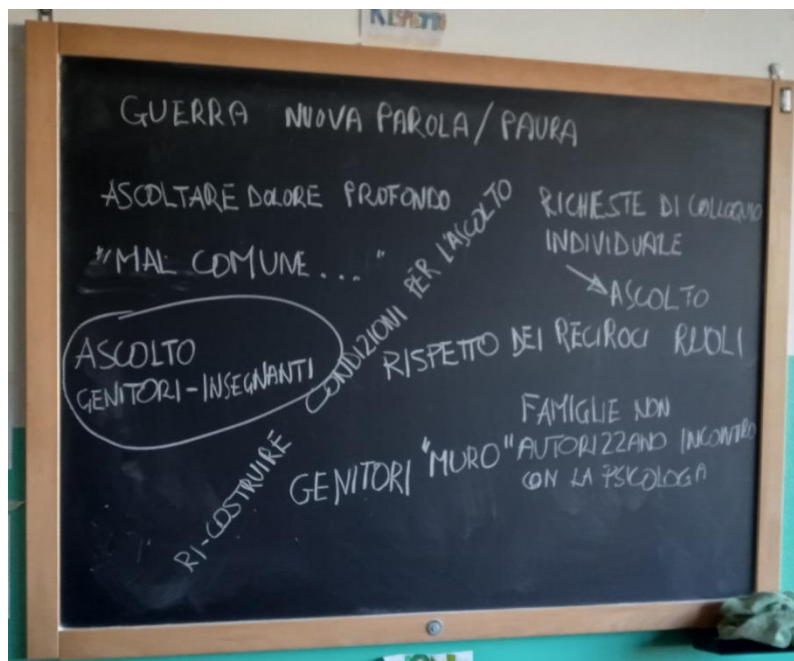 RISPETTO
GUERRA NUOVA PAROLA/PAURA
ASCOLTARE DOLORE PROFONDO
"MAL COMUNE..."
ASCOLTO
GENITORI-INSEGNANTI
RI-COSTRUIRE CONDIZIONI PER L'ASCOLTO
RICHIESTE DI COLLOQUIO
INDIVIDUALE
ASCOLTO
RISPETTO DEI RECIROCI RUOLI
GENITORI "MURO"
FAMIGLIE NON
AUTORIZZANO INCONTRO
CON LA PSICOLOGA